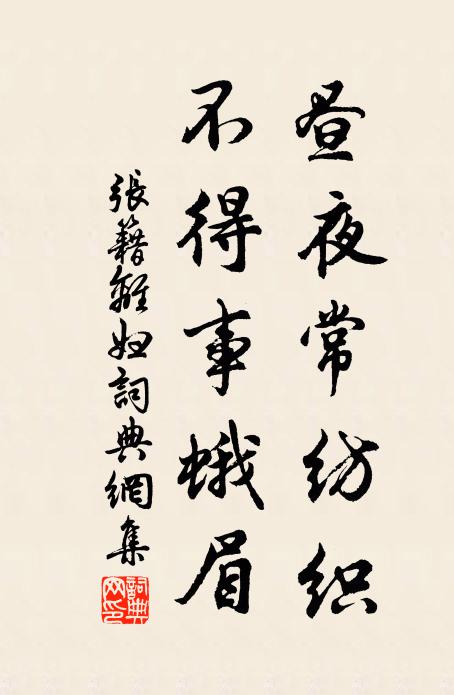 昼夜常纺织
不得事蛾眉
張籍離妇詞典網集
詞典网印